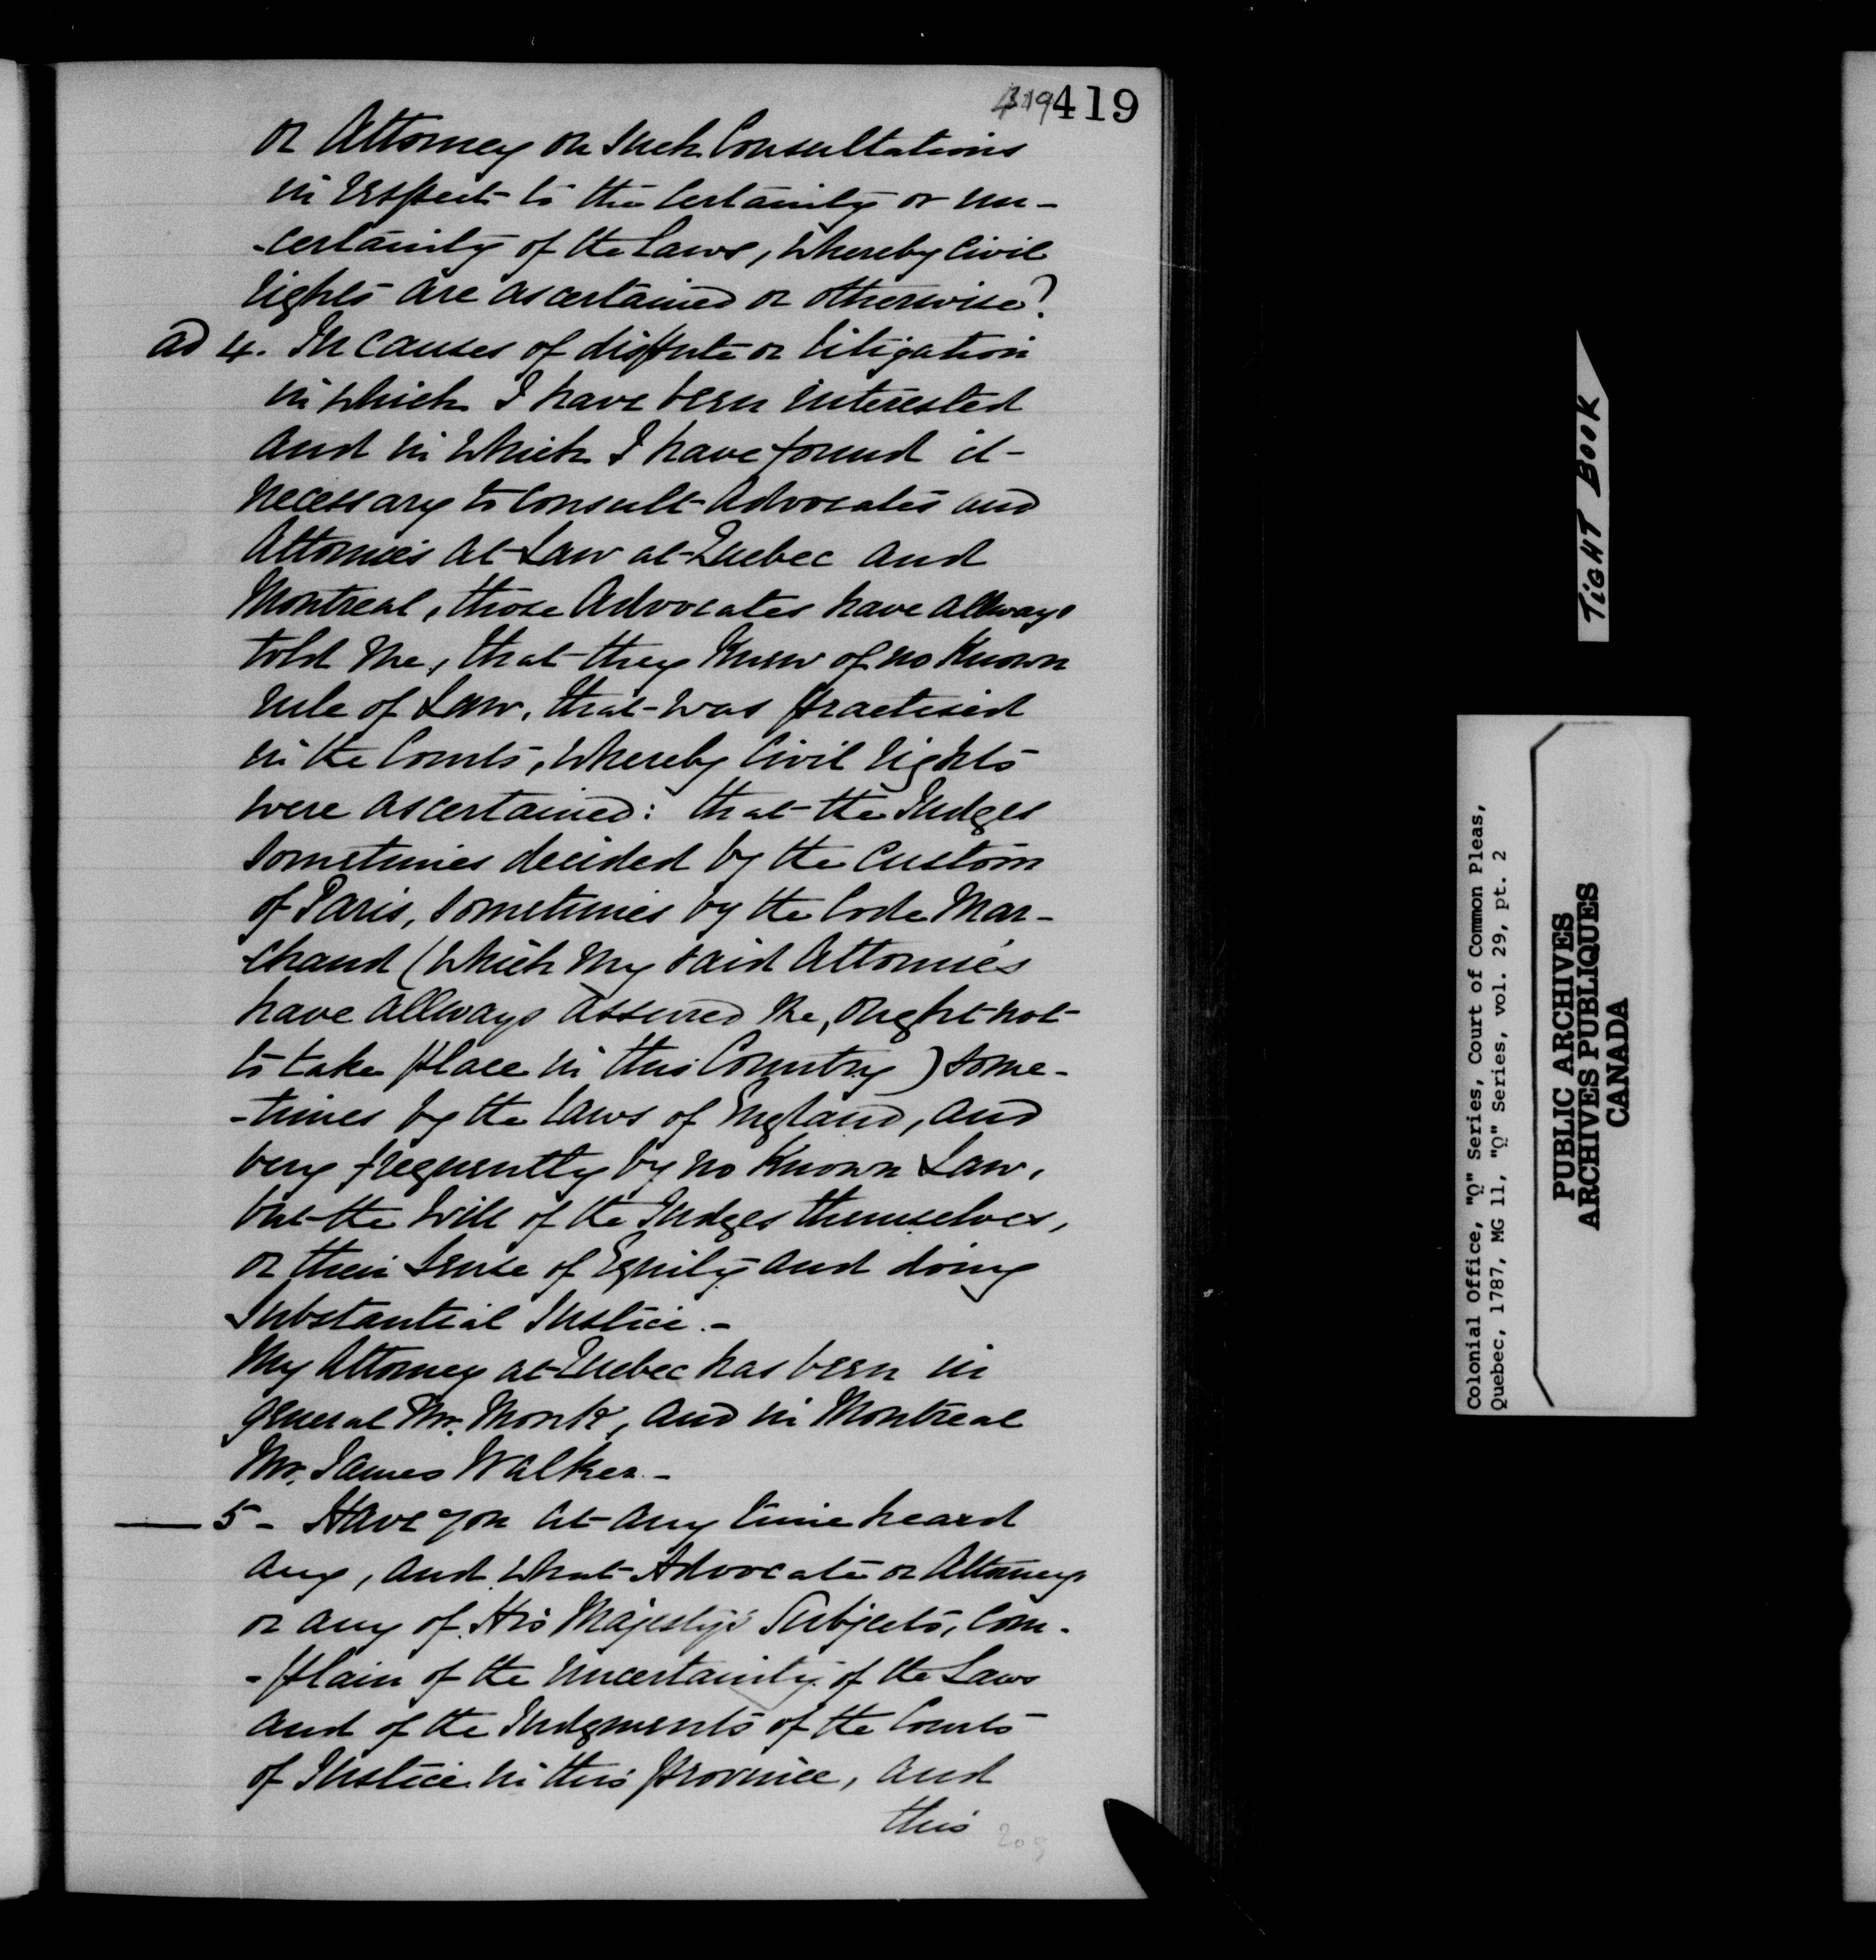 419
or Attorney on such Consultations
in respect to the Certainity or un-
-certainity of the Laws, whereby Civil
rights are ascertained or otherwise?
ad 4. In Causes of dispute or litigation
in which I have been interested
and in which I have found it
necessary to Consult Advocates and
Attornies at Law at Quebec and
Montreal, those Advocates have allways
told me, that they knew of no known
rule of Law, that was practised
in the Courts, whereby Civil rights
were ascertained: that the Judges
sometimes decided by the Custom
of Paris, sometimes by the Code Mar-
chand (which my said Attornies
have allways assured me, ought not
to take place in this Country) some-
-times by the Laws of England, and
very frequently by no known Law,
but the Will of the Judges themselves,
or their sense of Equity and doing
Substantial Justice.-
My Attorney at Quebec has been in
general Mr. Monk, and in Montreal
Mr. James Walker.-
5 - Have you at any time heard
any, and what Advocate or Attorney
or any of His Majesty's Subjects, Com-
-plain of the uncertainity of the Laws
and of the Judgments of the Courts
of Justice in this province, and
this
209
TIGHT BOOK
Colonial Office, "Q" Series, Court of Common Pleas,
Quebec, 1787, MG 11, "Q" Series, vol. 29, pt. 2
PUBLIC ARCHIVES
ARCHIVES PUBLIQUES
CANADA